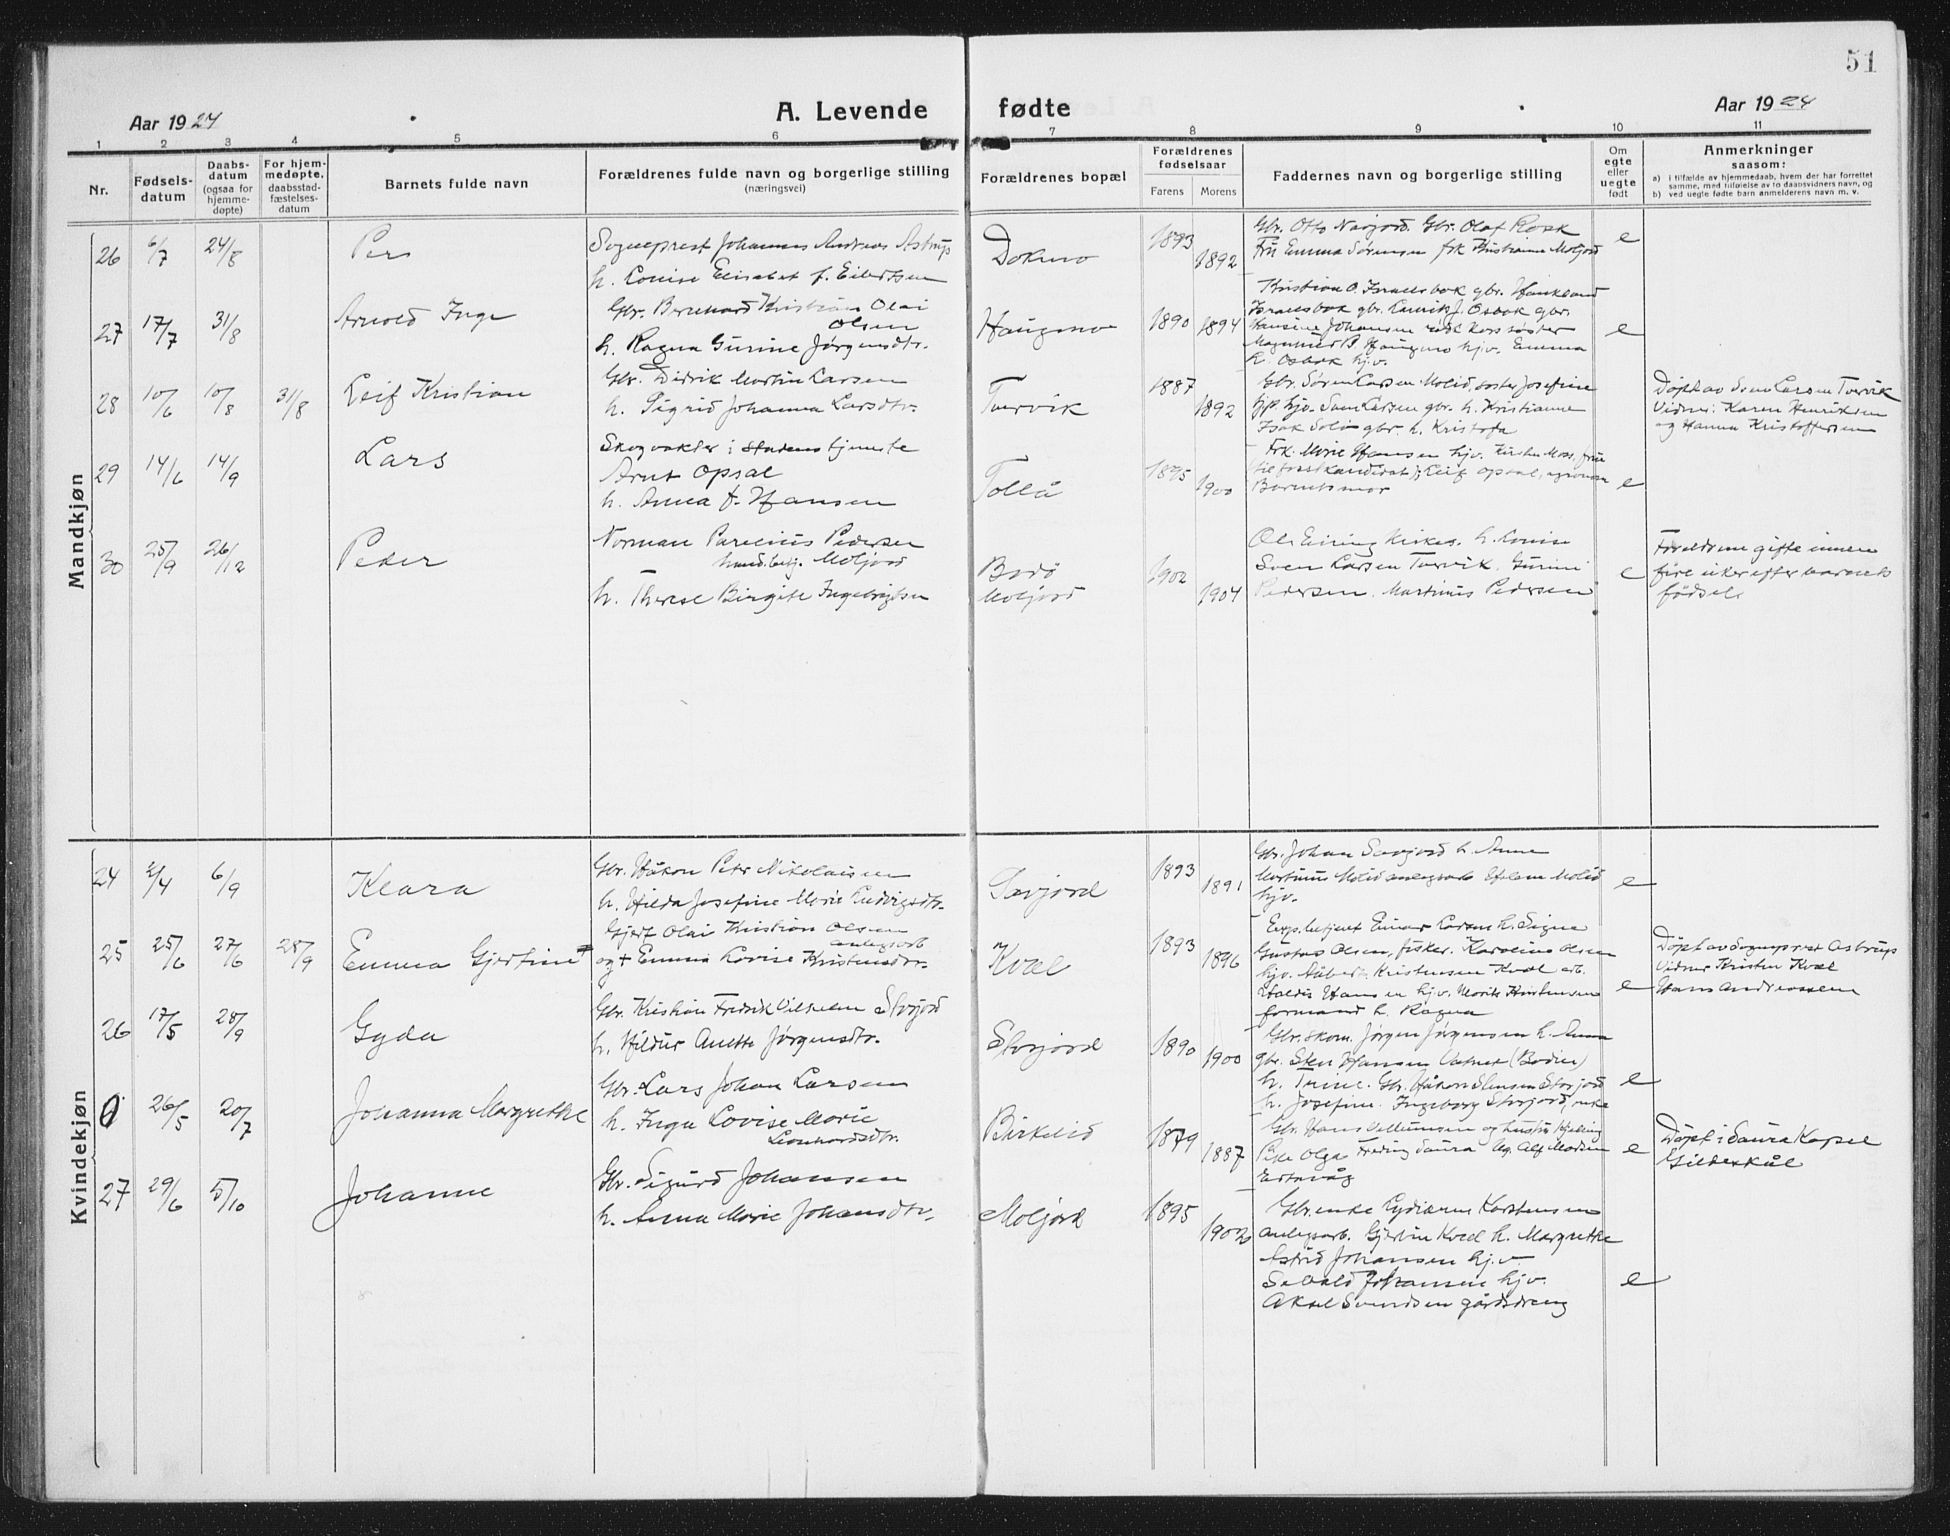 51
Aar 1924
A. Levende fødte
Aar 1924
1 2 3 4 5 6 7 8 9 10 11
Nr.
Fødsels-
datum
Daabs-
datum
(ogsaa for
hjemme-
døpte)
For hjem-
medøpte,
daabsstad-
fæstelses-
datum
Barnets fulde navn
Forældrenes fulde navn og borgerlige stilling
(næringsvei)
Forældrenes bopæl
Forældrenes
fødselsaar
Farens Morens
Faddernes navn og borgerlige stilling
Om
egte
eller
uegte
født
Anmerkninger
saasom:
a) i tilfælde av hjemmedaab, hvem der har forrettet
samme, med tilføielse av to daabsvidners navn, og
b) ved uegte fødte barn anmelderens navn m. v.
Mandkjøn
26 6/7 24/8 Per
Sogneprest Johannes Andreas Astrup
h. Louise Elisabet f. Eilertsen
Dokmo 1893 1892
Gbr. Otto Navjord. Gbr. Olaf Rosk
Fru Emma Sørensen frk Kristianne Moljord
e
27 17/7 31/8 Arnold Inge
Gbr. Bernhard Kristian Olai
Olsen
h. Ragna Gurine Jørgensdtr.
Haugmo 1890 1894
Kristian O. Israelsbak gbr. Haukland
Israelsbak gbr. Lauritz J. Osbak gbr.
Hansine Johansen röde Kors søster
Magnhild B. Haugmo hjv. Emma
K. Osbak hjv.
e
28 10/6 10/8 31/8 Leif Kristian
Gbr. Didrik Martin Larsen
h. Sigrid Johanna Larsdtr.
Tvervik 1887 1892
Gbr. Søren Larsen Molid, søster Josefine
hjv. Sven Larsen gbr. h. Kristianne
Isak gbr. h. Kristofa
Døpt av Sven Larsen Tvervik
Vidner: Karen Henriksen
og Hanna Kristoffersen
29 14/6 14/9 Lars
Skogvokter i statens tjeneste
Arnt Opsal
h. Anna f. Hansen
Tollå 1895 1900
Frk. Marie Hansen hjv. Kirsten Moss, frue
Leif Opsal,
Barnets mor
e
30 25/9 26/12 Peder
Norman Parelius Pedersen
Moljord
h. Therese Birgite Ingebrigtsen
Bodö
Moljord
1902 1904
Ole Eiring Kirkes. h. Louise
Sven Larsen Tvervik. Gurine
Pedersen. Martinus Pedersen
e
Foreldrene gifte innen
fire uker efter barnets
fødsel.
Kvindekjøn
24 2/4 6/9 Klara
Gbr. Håkon Peter Nikolaisen
h. Hilda Josefine Marie Ludvigsdtr.
Savjord 1893 1891
Gbr. Johan Savjord h. Anne
Martinus Molid anlegsarb. Molid
hjv.
e
25 25/6 27/6 28/9 Emma Gjertine
Gjert Olai Kristian Olsen
anlegsarb
og + Emma Lovise Kristensdtr.
Kvæl 1893 1896
Exp. betjent Einar Larsen h. Signe
Gustav Olsen, fisker. Karoline Olsen
hjv. Albert Kristensen Kvæl arb.
Haldis Hansen hjv. Marits Kristensen
formand h. Ragna
e
Døpt av Sogneprest Astrup
Vidner Kristen Kvæl
Hans Andreassen
26 17/5 28/9 Gyda
Gbr. Kristian Fredrik Vilhelm Storjord
h. Hildur Anette Jørgensdtr.
Storjord 1890 1900
Gbr. skom. Jørgen Jørgensen h. Anna
gbr. Sten Hansen Vatnet (Bodin)
h. Trine. Gbr. Håkon Stensen Storjord
h. Josefine. Ingeborg Storjord, enke
e
0 26/5 20/7 Johanna Margrethe
Gbr. Lars Johan Larsen
h. Inga Lovise Marie
Leonhardsdtr.
Birkelid 1879 1887
Gbr. Hans og hustru
Olga Saura
e
Døpt i Saura Kapel
Gildeskål
27 29/6 5/10 Johanne
Gbr. Sigurd Johansen
h. Anna Marie Johansdtr.
Moljord 1895 1902
Gbr.enke Karstensen
anlegsarb. Gjertin Kvæl h. Margrethe
Astrid Johansen hj.v.
Sevald Johansen hjv.
Aksel Svendsen gårdsdreng
e